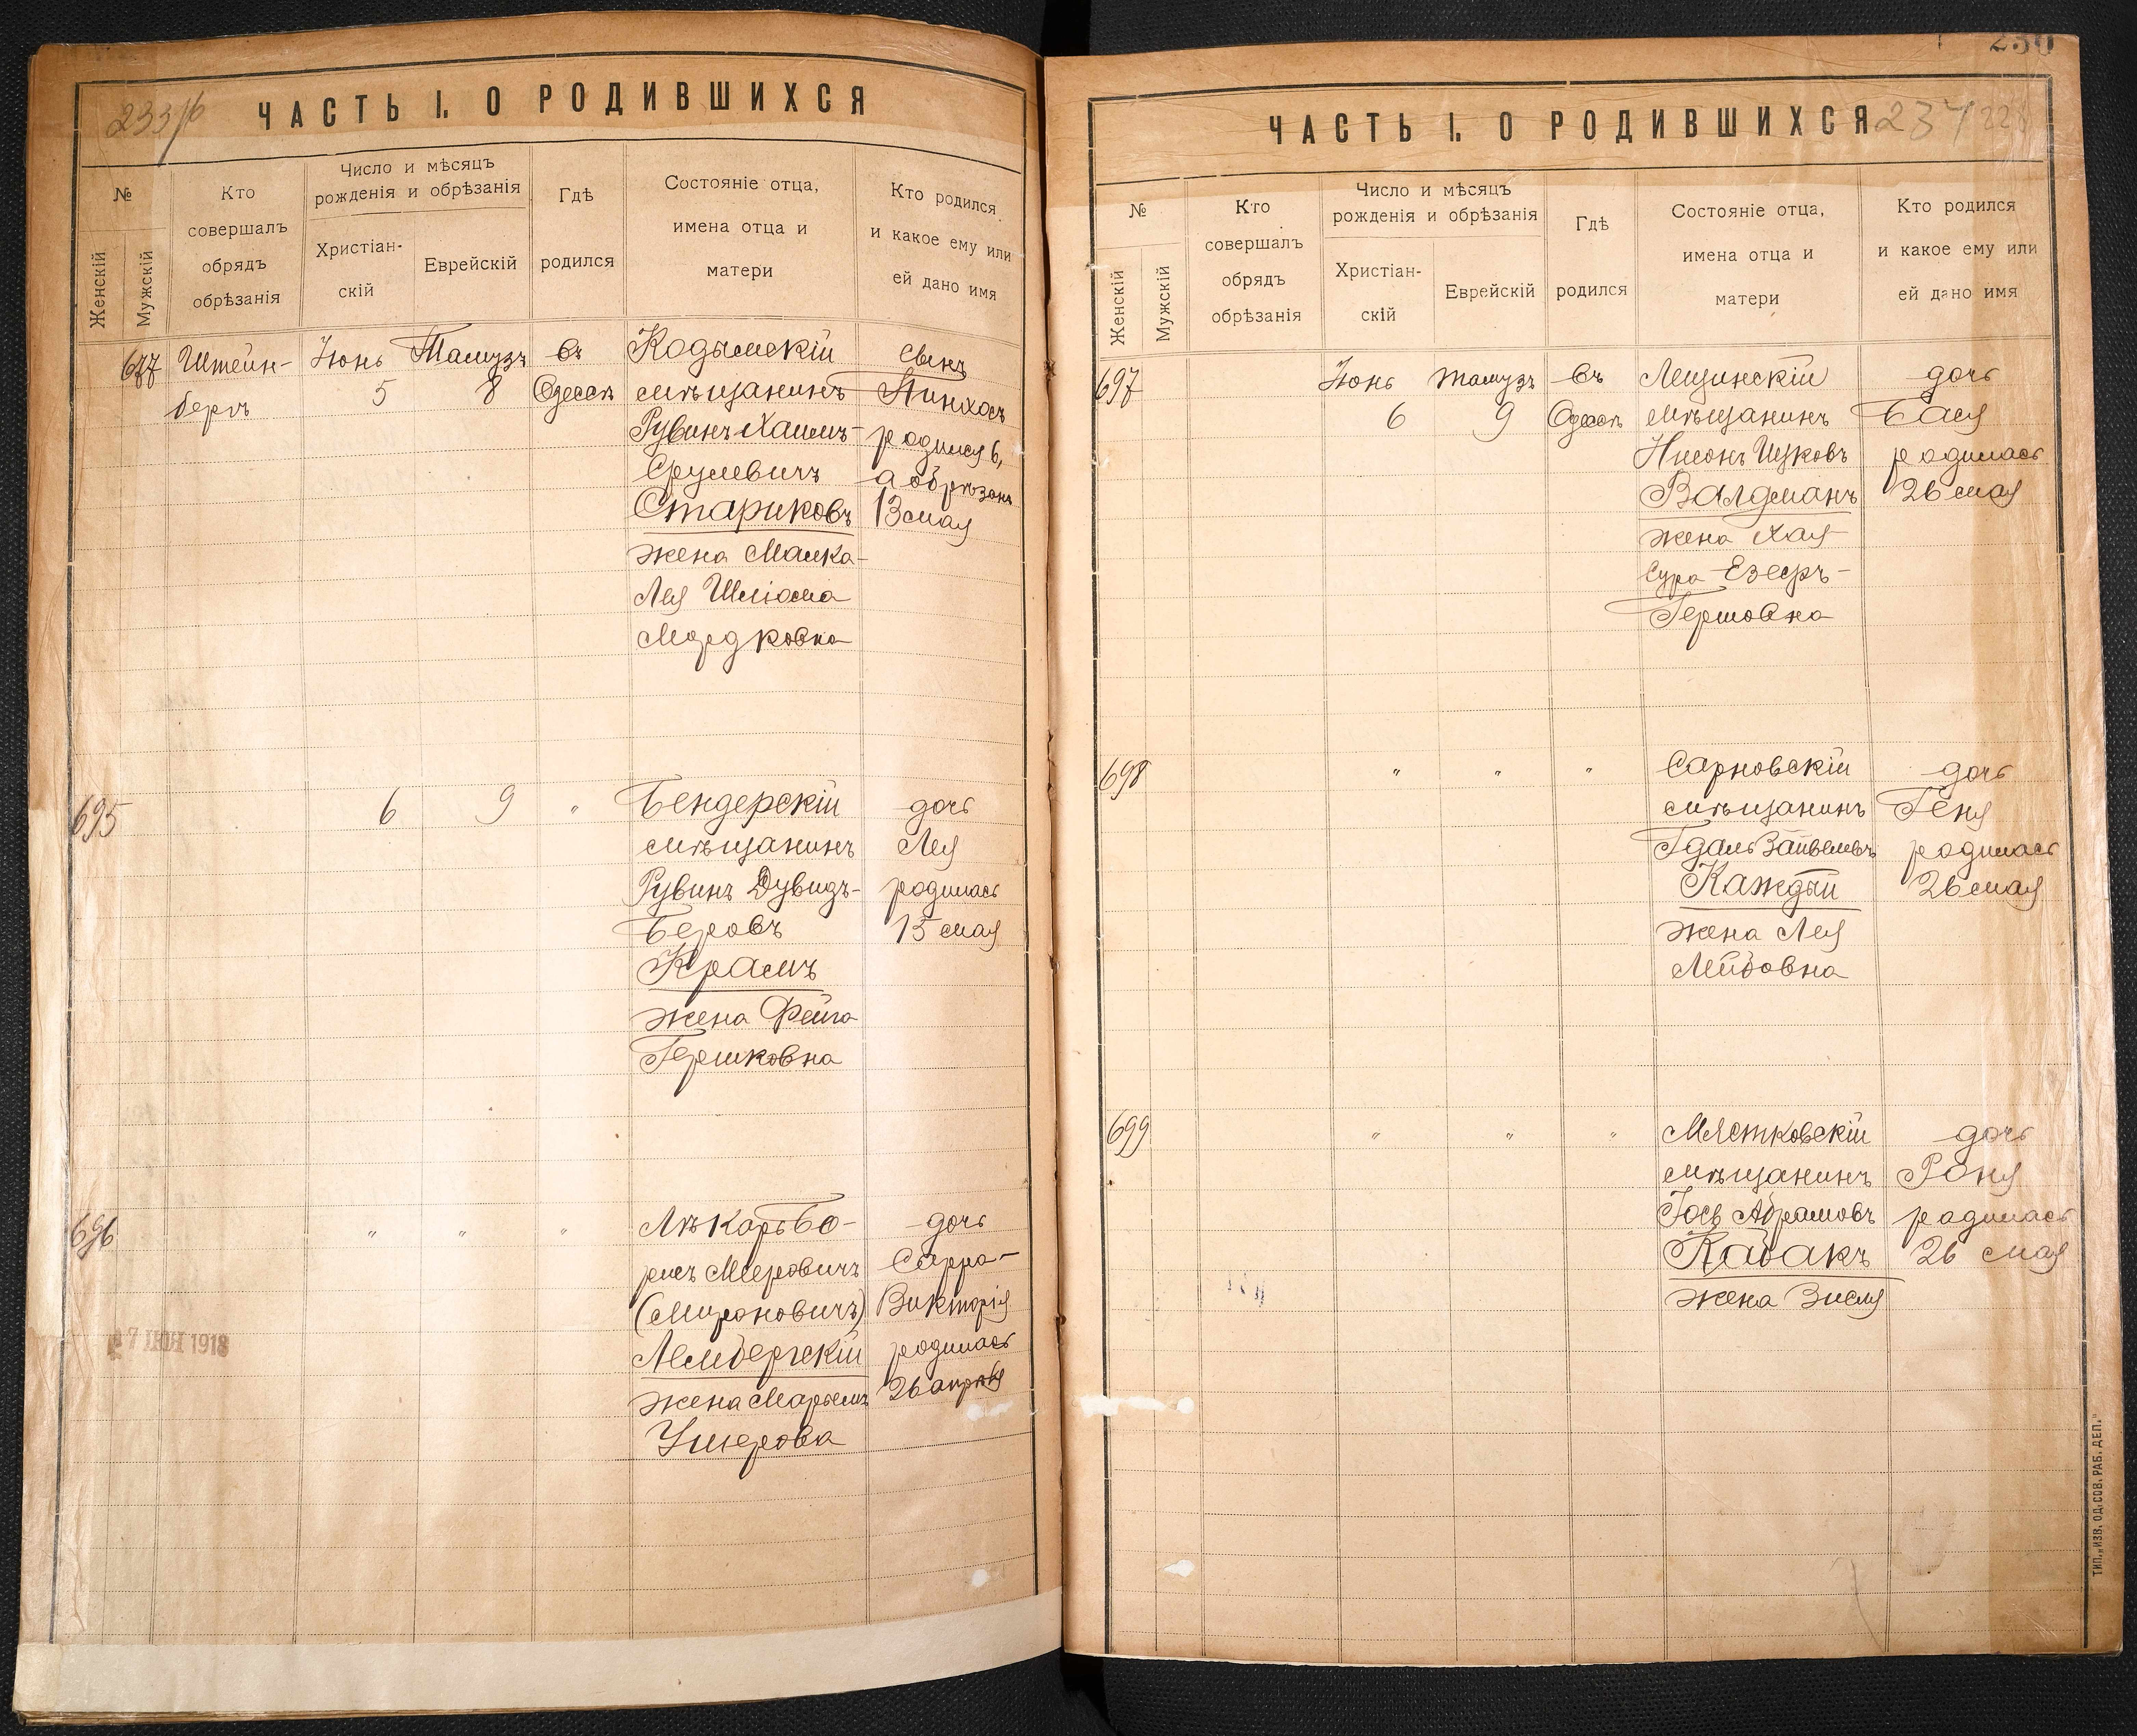 233/б
ЧАСТЬ I. О РОДИВШИХСЯ
№
Женскій
Мужскій
Кто
совершалъ
обрядъ
обрѣзанія
Число и мѣсяцъ
рожденія и обрѣзанія
Христіан-
скій
Еврейскій
Гдѣ
родился
Состояніе отца,
имена отца и
матери
Кто родился
и какое ему или
ей дано имя
677
Штейн-
бергъ
Іюнь
5
Тамузъ
8
въ
Одессѣ
Кодымскій
мѣщанинъ
Рувинъ Хаимъ-
Срулевичъ
Стариковъ
жена Малка-
Лея Шліома
Мордковна
сынъ
Пинхосъ
родился 6,
а обрѣзанъ
13 мая
695
6
9
"
Бендерскій
мѣщанинъ
Рувинъ Дувидъ-
Беровъ
Крамъ
жена Фейга
Гершковна
дочь
Лея
родилась
15 мая
696
"
"
"
Лѣкарь Бо-
рисъ Мееровичъ
(Мироновичъ)
Лембергскій
жена Марьемъ
Ушерова
дочь
Сарра-
Викторія
родилась
26 апрѣля
27 ІЮН 1918
230
ЧАСТЬ I. О РОДИВШИХСЯ
234
№
Женскій
Мужскій
Кто
совершалъ
обрядъ
обрѣзанія
Число и мѣсяцъ
рожденія и обрѣзанія
Христіан-
скій
Еврейскій
Гдѣ
родился
Состояніе отца,
имена отца и
матери
Кто родился
и какое ему или
ей дано имя
697
Іюнь
6
Тамузъ
9
въ
Одессѣ
Лещинскій
мѣщанинъ
Нисонъ Ицковъ
Валдманъ
жена Хая
Сура Езеръ-
Гершовна
дочь
Бася
родилась
26 мая
698
"
"
"
Сарновскій
мѣщанинъ
Гдаль Зайвелевъ
Каждый
жена Лея
Лейбовна
дочь
Геня
родилась
26 мая
699
"
"
"
Мястковскій
мѣщанинъ
Іось Абрамовъ
Кабакъ
жена Зися
дочь
Роня
родилась
26 мая
ТИП. „ИЗВ. ОД. СОВ. РАБ. ДЕП."